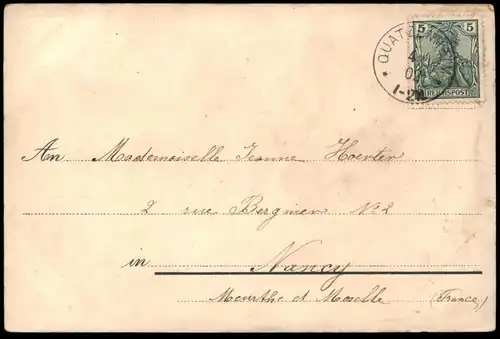 5 5
REICHSPOST
4
1-2N
An Mademoiselle Jeanne Hoerter
2 rue Bergnier No 2
in Nancy
Meurthe et Moselle (France)